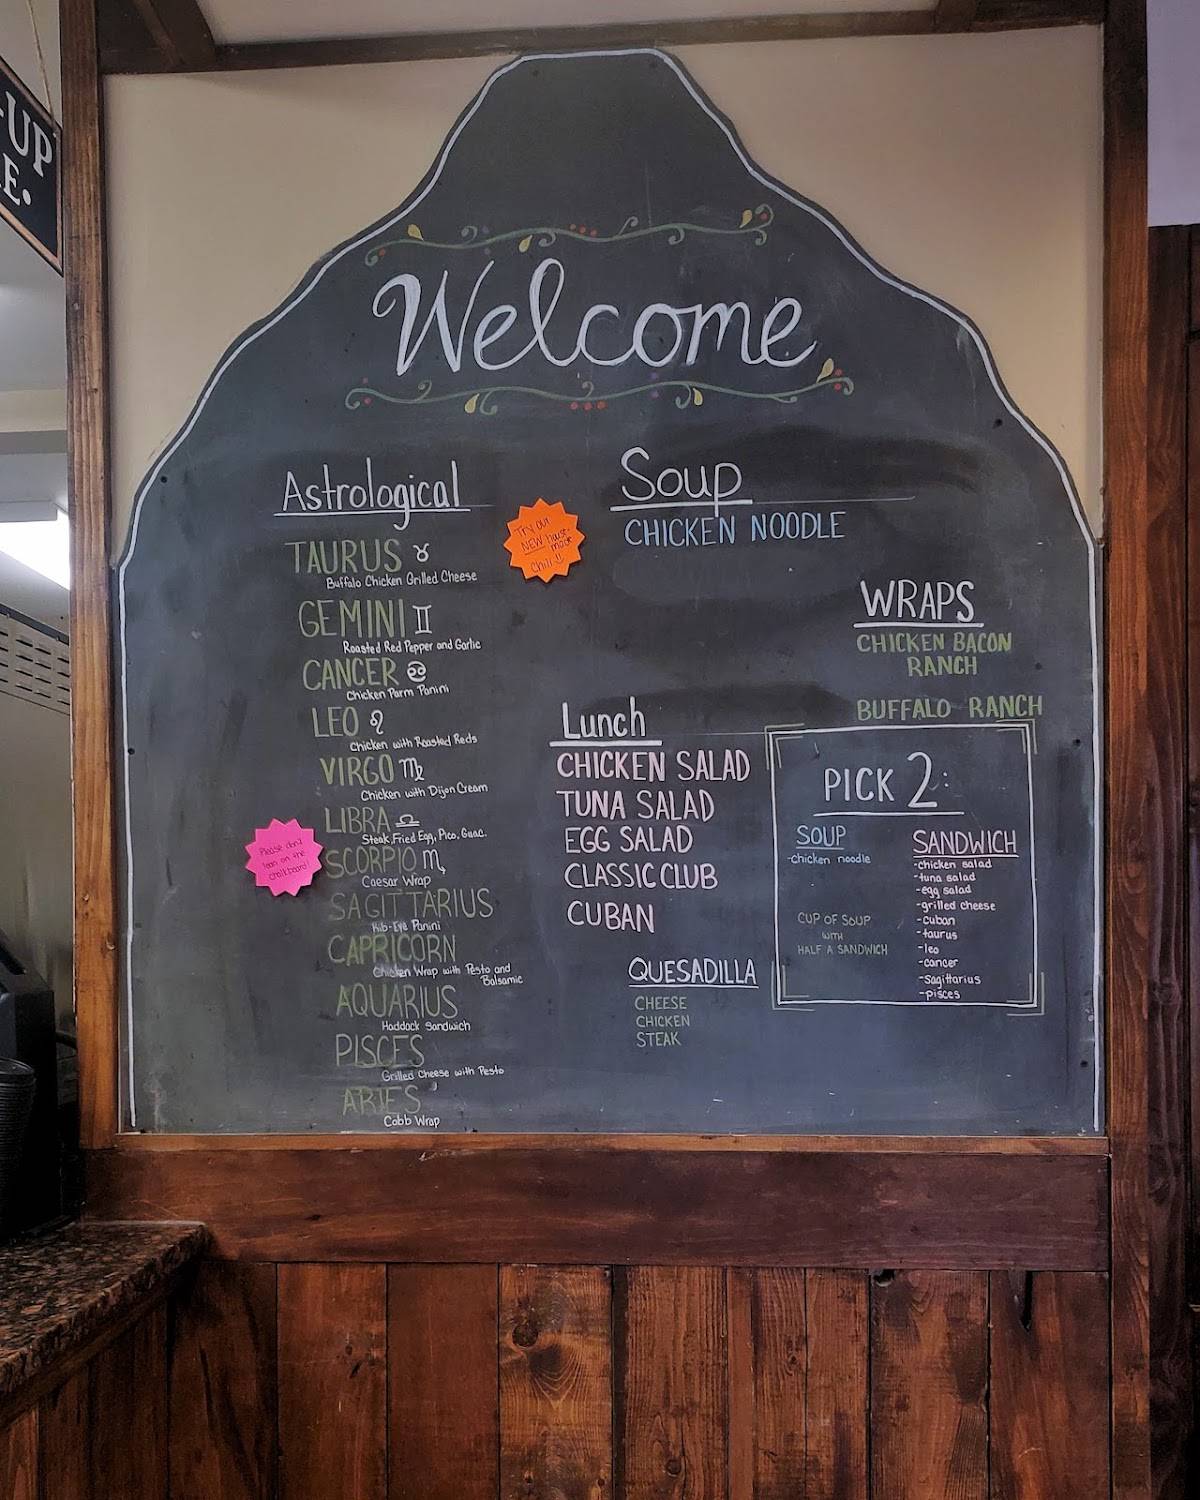 -UP
E.
Welcome
Astrological
TAURUS ♉
Buffalo Chicken Grilled Cheese
GEMINI ♊
Roasted Red Pepper and Garlic
CANCER ♋
Chicken Parm Panini
LEO ♌
Chicken with Roasted Reds
VIRGO ♍
Chicken with Dijon Cream
LIBRA ♎
Steak, Fried Egg, Pico, Guac.
SCORPIO ♏
Caesar Wrap
SAGITTARIUS
Rib-Eye Panini
CAPRICORN
Chicken Wrap with Pesto and
Balsamic
AQUARIUS
Haddock Sandwich
PISCES
Grilled Cheese with Pesto
ARIES
Cobb Wrap
Please don't
lean on the
chalkboard
Try our
NEW house-
made
chili!!
Soup
CHICKEN NOODLE
WRAPS
CHICKEN BACON
RANCH
BUFFALO RANCH
Lunch
CHICKEN SALAD
TUNA SALAD
EGG SALAD
CLASSIC CLUB
CUBAN
QUESADILLA
CHEESE
CHICKEN
STEAK
PICK 2:
SOUP
-chicken noodle
CUP OF SOUP
WITH
HALF A SANDWICH
SANDWICH
-chicken salad
-tuna salad
-egg salad
-grilled cheese
-cuban
-taurus
-leo
-cancer
-Sagittarius
-pisces